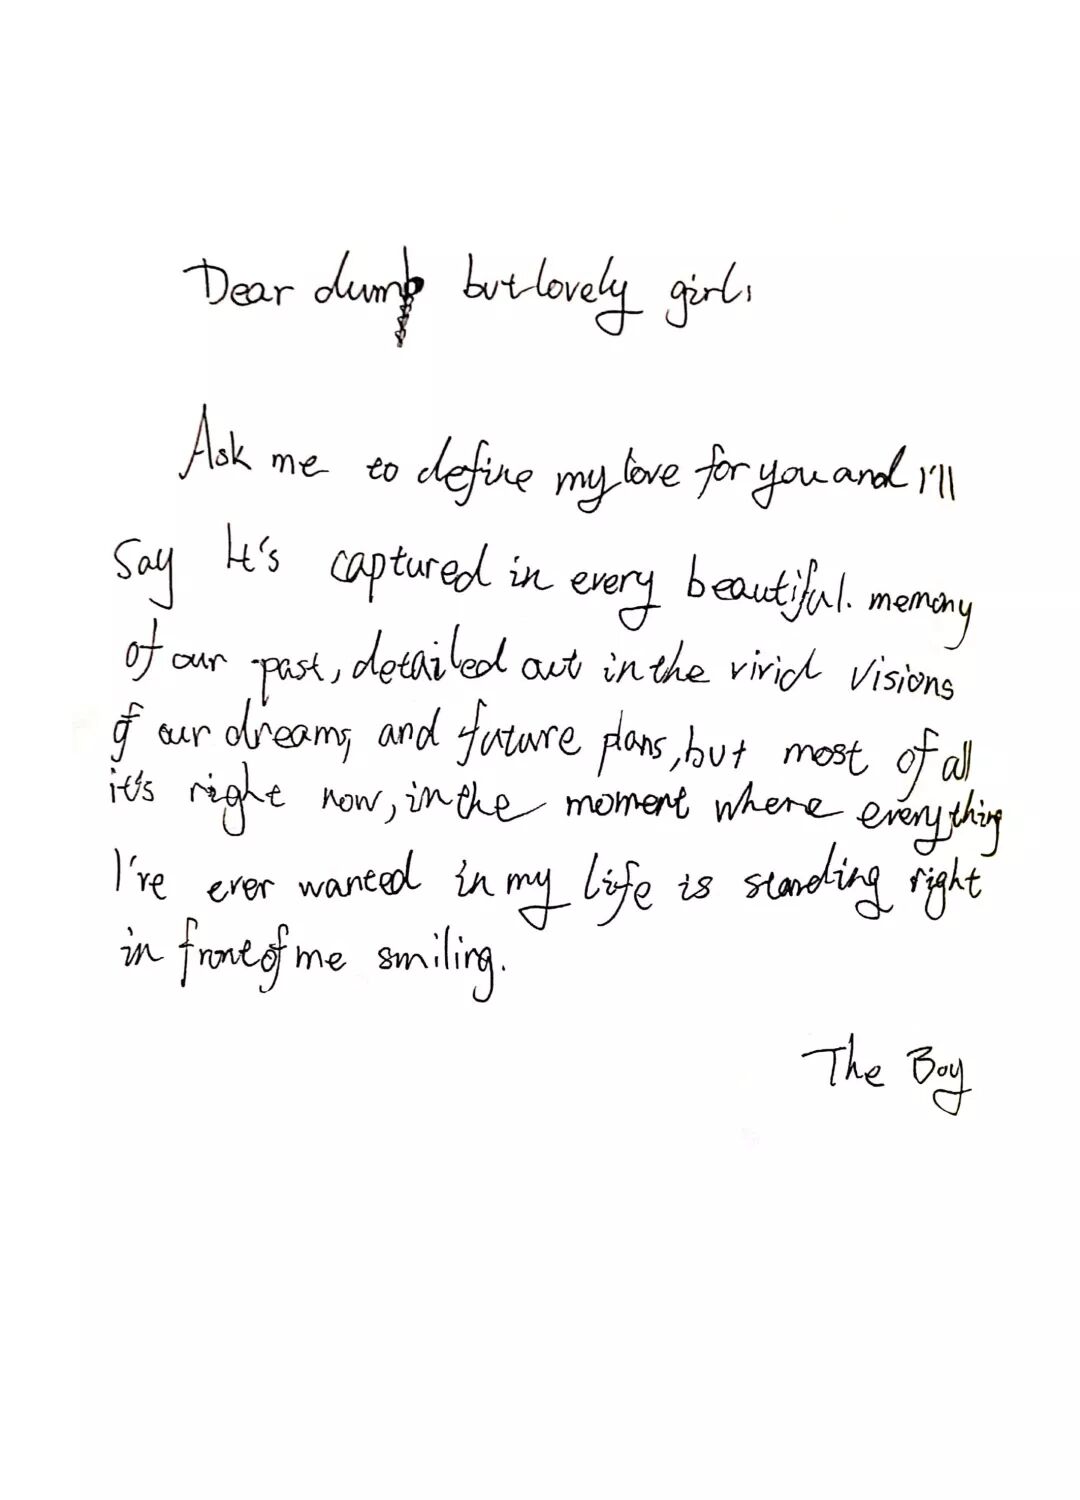 Dear dumb but lovely girl,
Ask me to define my love for you and I'll
Say It's captured in every beautiful. memory
of our past, detailed out in the vivid visions
of our dreams, and future plans, but most of all
it's right now, in the moment where everything
I've ever wanted in my life is standing right
in front of me smiling.
The Boy